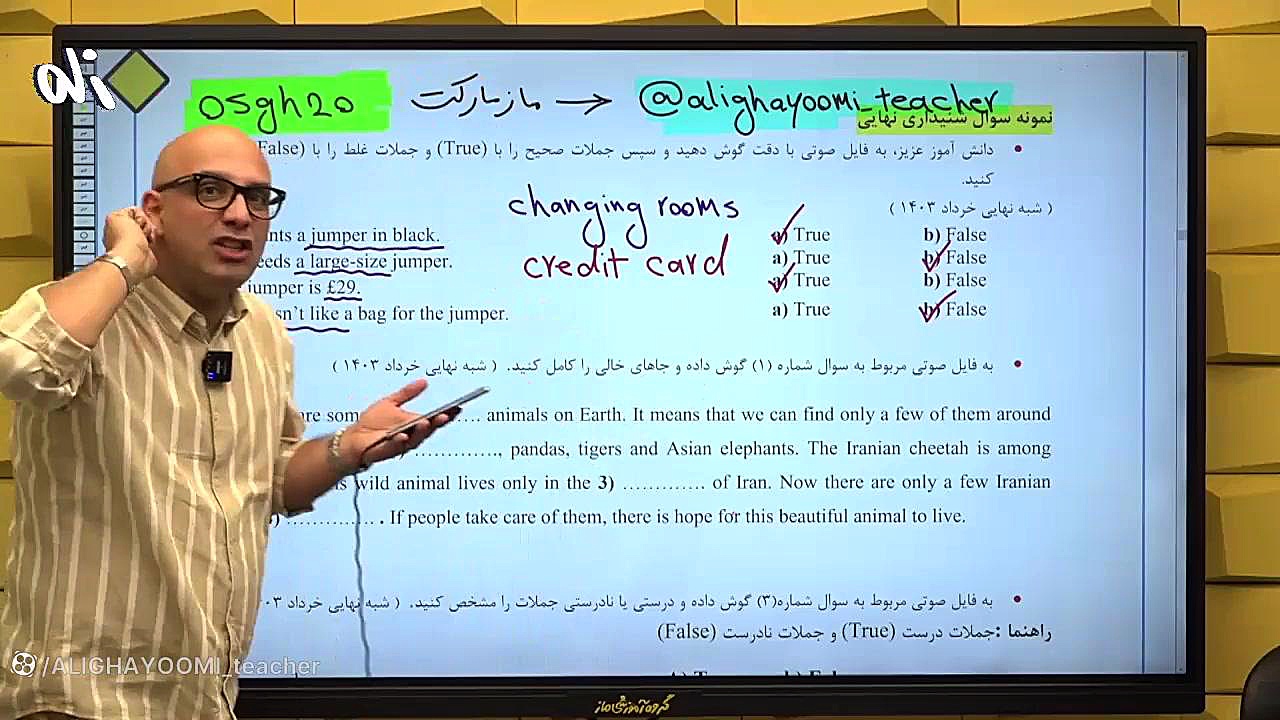 ali
osgh20 مازمارکت → @alighayoomi_teacher
نمونه سوال شنیداری نهایی
• دانش آموز عزیز، به فایل صوتی با دقت گوش دهید و سپس جملات صحیح را با (True) و جملات غلط را با (False)
کنید.
( شبه نهایی خرداد ۱۴۰۳ )
changing rooms
credit card
nts a jumper in black. a) True b) False
eeds a large-size jumper. a) True b) False
jumper is £29. a) True b) False
sn't like a bag for the jumper. a) True b) False
• به فایل صوتی مربوط به سوال شماره (۱) گوش داده و جاهای خالی را کامل کنید. ( شبه نهایی خرداد ۱۴۰۳ )
re som …. animals on Earth. It means that we can find only a few of them around
) …………., pandas, tigers and Asian elephants. The Iranian cheetah is among
s wild animal lives only in the 3) …………. of Iran. Now there are only a few Iranian
) …………. . If people take care of them, there is hope for this beautiful animal to live.
• به فایل صوتی مربوط به سوال شماره(۳) گوش داده و درستی یا نادرستی جملات را مشخص کنید. ( شبه نهایی خرداد ۰۳
راهنما :جملات درست (True) و جملات نادرست (False)
/ALIGHAYOOMI_teacher
گروه آموزشی ماز